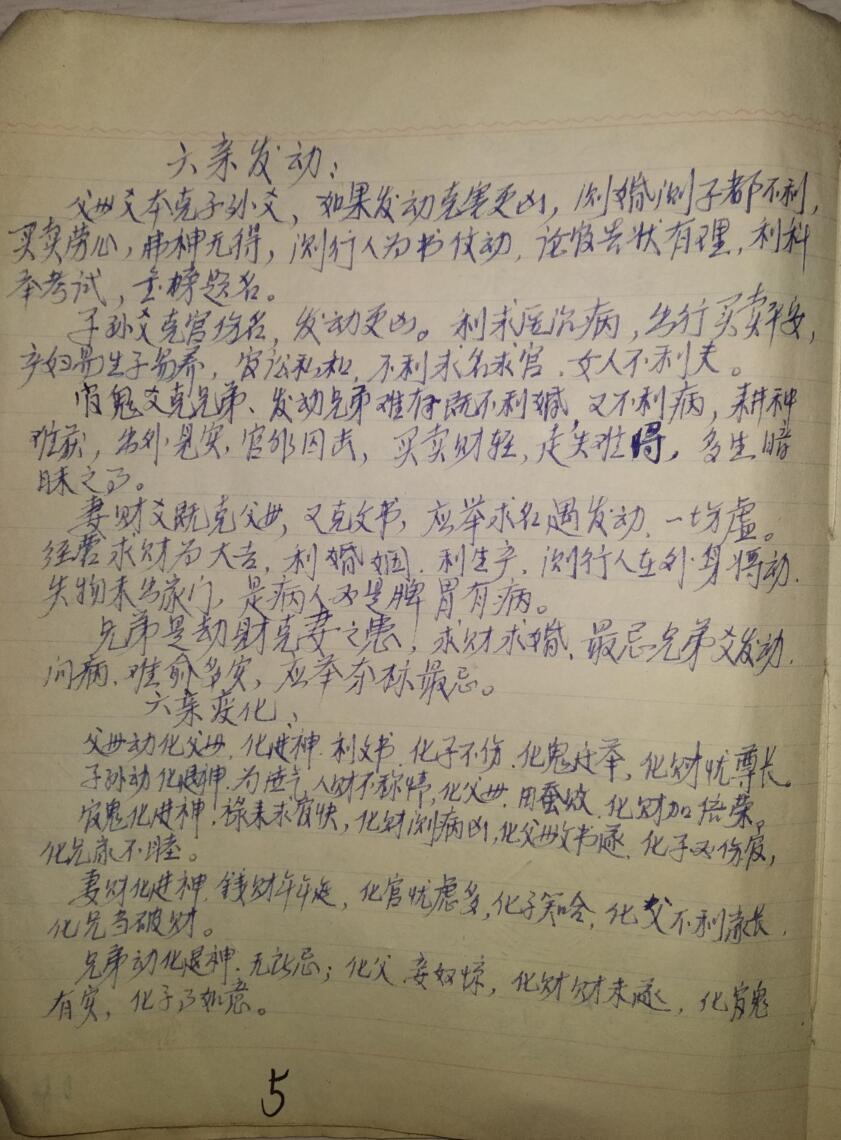 六亲发动：
父母爻本克子孙爻，如果发动克害更凶，测婚测子都不利，
买卖劳心，弗神无得，测行人为书信动，论官告状有理，利科
举考试，金榜题名。
子孙爻克官伤名，发动更凶。利求医治病，出行买卖平安，
产妇易生子易养，官讼私和，不利求名求官，女人不利夫。
官鬼爻克兄弟、发动兄弟难存既不利婚，又不利病，耕种
难获，出外见灾，官外因击，买卖财轻，走失难得，多生暗
昧之事。
妻财爻既克父母，又克文书，应举求名遇发动，一切虚。
经营求财为大吉，利婚姻，利生产，测行人在外身将动，
失物未出家门，是病人必是脾胃有病。
兄弟是劫财克妻之患，求财求婚、最忌兄弟爻发动，
问病、难愈多灾，应举夺标最忌。
六亲变化：
父母动化父母，化进神利文书，化子不伤，化鬼迁举，化财忧尊长。
子孙动化退神，为庄气人财不称情，化父母田蚕败，化财加倍荣。
官鬼化进神，禄来求官快，化财测病凶，化父母文书遂，化子必伤官，
化兄家不睦。
妻财化进神，钱财年年进，化官忧虑多，化子笑哈哈，化父不利家长，
化兄当破财。
兄弟动化退神，无所忌；化父妾奴惊，化财财未遂，化官鬼
有灾，化子了如意。
5